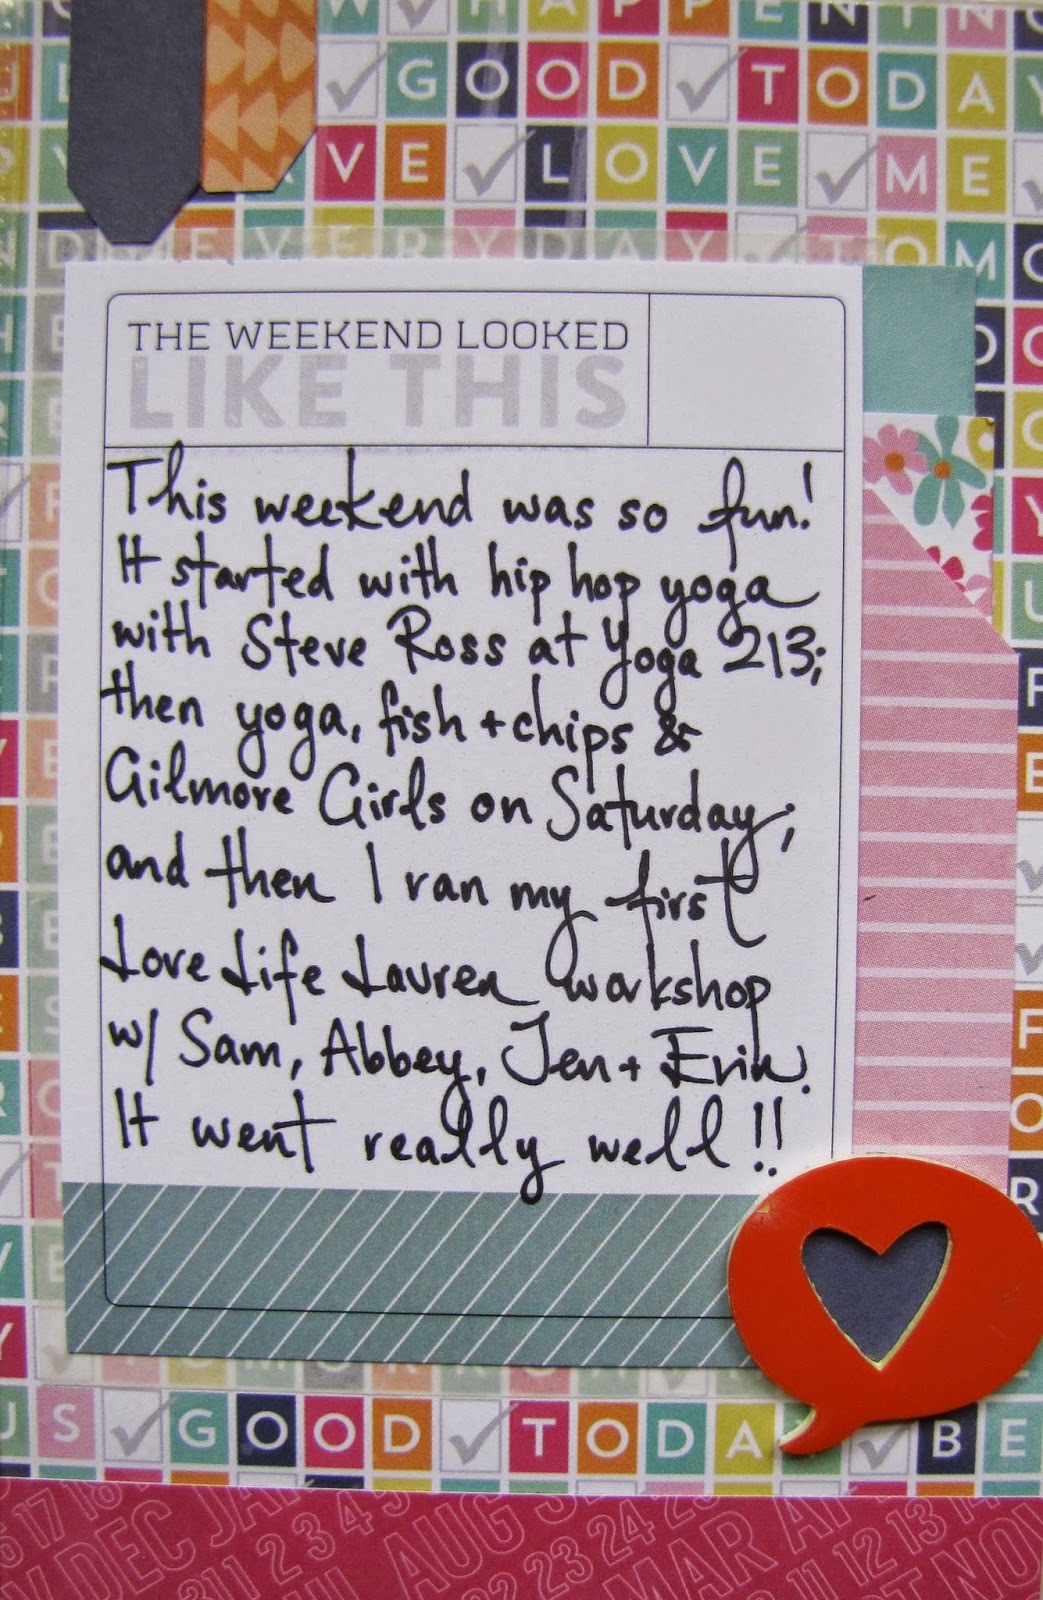 HAPPENING
GOOD ✓ TODAY
VE ✓ LOVE ✓ ME
EVERYDAY ✓ TOMO
THE WEEKEND LOOKED
LIKE THIS
This weekend was so fun!
It started with hip hop yoga
with Steve Ross at Yoga 213;
then yoga, fish + chips &
Gilmore Girls on Saturday;
and then I ran my first
Love Life Lauren workshop
w/ Sam, Abbey, Jen + Erin.
It went really well!!
US ✓ GOOD ✓ TODA ✓ BE
16 17 18 DEC JAN 1 2 3 4 5 AUG 22 23 24 25 MAR 11 12 13 14 NOV